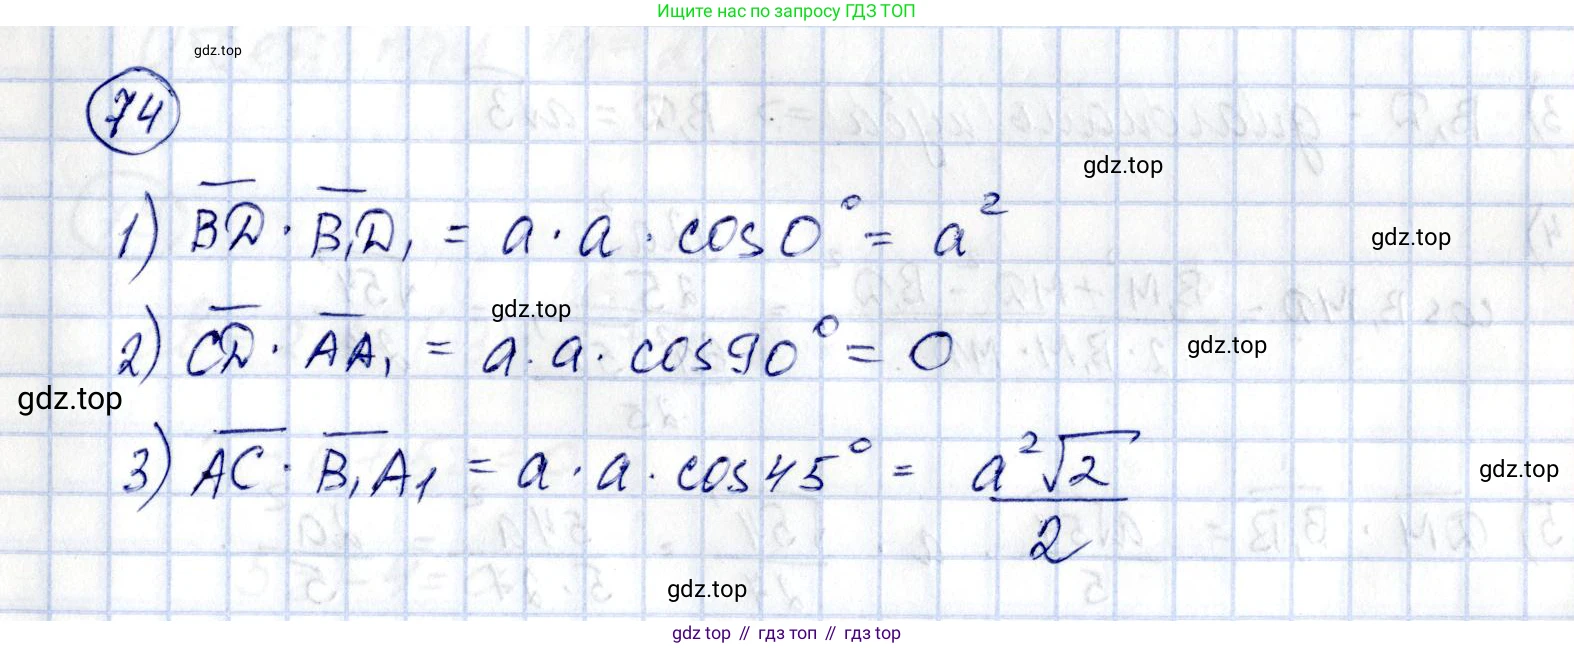 Ищите нас по запросу ГДЗ ТОП
gdz.top
74
gdz.top
1) BD · B₁D₁ = a · a · cos 0° = a²
gdz.top
gdz.top
2) CD · AA₁ = a · a · cos 90° = 0
gdz.top
gdz.top
3) AC · B₁A₁ = a · a · cos 45° = a²√2 / 2
gdz.top
gdz.top
gdz top // гдз топ // гдз top